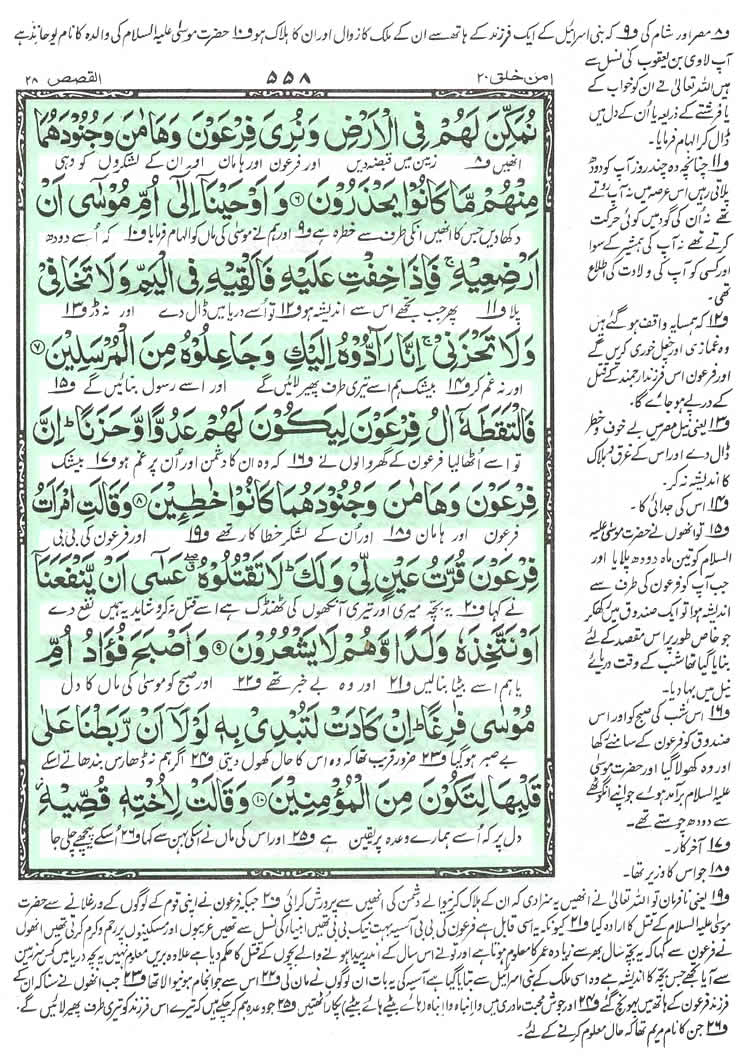 و۸ مصر اور شام کی و۹ کہ بنی اسرائیل کے ایک فرزند کے ہاتھ سے ان کے ملک کا زوال اور ان کا ہلاک ہو و۱۰ حضرت موسیٰ علیہ السلام کی والدہ کا نام یوحانذ ہے
القصص ۲۸
۵۵۸
امن خلق ۲۰
نُمَكِّنَ لَهُمْ فِی الْاَرْضِ وَ نُرِیَ فِرْعَوْنَ وَ هَامٰنَ وَ جُنُوْدَهُمَا
انھیں و۸ زمین میں قبضہ دیں اور فرعون اور ہامان اور ان کے لشکروں کو وہی
مِنْهُمْ مَّا كَانُوْا یَحْذَرُوْنَ ۶ وَ اَوْحَیْنَاۤ اِلٰۤى اُمِّ مُوْسٰۤى اَنْ
دکھا دیں جس کا انھیں انکی طرف سے خطرہ ہے و۹ اور ہم نے موسیٰ کی ماں کو الہام فرمایا و۱۰ کہ اُسے دودھ
اَرْضِعِیْهِ ۚ فَاِذَا خِفْتِ عَلَیْهِ فَاَلْقِیْهِ فِی الْیَمِّ وَ لَا تَخَافِیْ
پلا و۱۱ پھر جب تجھے اس سے اندیشہ ہو و۱۲ تو اُسے دریا میں ڈال دے اور نہ ڈر و۱۳
وَ لَا تَحْزَنِیْ ۚ اِنَّا رَآدُّوْهُ اِلَیْكِ وَ جَاعِلُوْهُ مِنَ الْمُرْسَلِیْنَ ۷
اور نہ غم کر و۱۴ بیشک ہم اسے تیری طرف پھیر لائیں گے اور اسے رسول بنائیں گے و۱۵
فَالْتَقَطَهٗۤ اٰلُ فِرْعَوْنَ لِیَكُوْنَ لَهُمْ عَدُوًّا وَّ حَزَنًا ؕ اِنَّ
تو اسے اُٹھا لیا فرعون کے گھر والوں نے و۱۶ کہ وہ ان کا دشمن اور اُن پر غم ہو و۱۷ بیشک
فِرْعَوْنَ وَ هَامٰنَ وَ جُنُوْدَهُمَا كَانُوْا خٰطِـِٕیْنَ ۸ وَ قَالَتِ امْرَاَتُ
فرعون اور ہامان و۱۸ اور اُن کے لشکر خطا کار تھے و۱۹ اور فرعون کی بی بی
فِرْعَوْنَ قُرَّتُ عَیْنٍ لِّیْ وَ لَكَ ؕ لَا تَقْتُلُوْهُ ۖۗ عَسٰۤى اَنْ یَّنْفَعَنَاۤ
نے کہا و۲۰ یہ بچہ میری اور تیری آنکھوں کی ٹھنڈک ہے اسے قتل نہ کرو شاید یہ ہمیں نفع دے
اَوْ نَتَّخِذَهٗ وَلَدًا وَّ هُمْ لَا یَشْعُرُوْنَ ۹ وَ اَصْبَحَ فُؤَادُ اُمِّ
یا ہم اسے بیٹا بنا لیں و۲۱ اور وہ بے خبر تھے و۲۲ اور صبح کو موسیٰ کی ماں کا دل
مُوْسٰى فٰرِغًا ؕ اِنْ كَادَتْ لَتُبْدِیْ بِهٖ لَوْ لَاۤ اَنْ رَّبَطْنَا عَلٰى
بے صبر ہو گیا و۲۳ ضرور قریب تھا کہ وہ اس کا حال کھول دیتی و۲۴ اگر ہم نہ ڈھارس بندھاتے اسکے
قَلْبِهَا لِتَكُوْنَ مِنَ الْمُؤْمِنِیْنَ ۱۰ وَ قَالَتْ لِاُخْتِهٖ قُصِّیْهِ ؗ
دل پر کہ اُسے ہمارے وعدہ پر یقین رہے و۲۵ اور اس کی ماں نے اسکی بہن سے کہا و۲۶ اُسکے پیچھے چلی جا
آپ لاوی بن یعقوب کی نسل سے
ہیں اللہ تعالیٰ نے ان کو خواب کے
یا فرشتے کے ذریعہ یا اُن کے دل میں
ڈال کر الہام فرمایا۔
و۱۱ چنانچہ وہ چند روز آپ کو دودھ
پلاتی رہیں اس عرصہ میں نہ آپ روتے
تھے نہ اُن کی گود میں کوئی حرکت
کرتے تھے نہ آپ کی ہمشیر کے سوا
اور کسی کو آپ کی ولادت کی اطلاع
تھی۔
و۱۲ کہ ہمسایہ واقف ہو گئے ہیں
وہ غمازی اور چغل خوری کریں گے
اور فرعون اس فرزند ارجمند کے قتل
کے درپے ہو جائے گا۔
و۱۳ یعنی نیل مصر میں بے خوف و خطر
ڈال دے اور اس کے غرق و ہلاک
کا اندیشہ نہ کر۔
و۱۴ اس کی جدائی کا۔
و۱۵ تو انھوں نے حضرت موسیٰ علیہ
السلام کو تین ماہ دودھ پلایا اور
جب آپ کو فرعون کی طرف سے
اندیشہ ہوا تو ایک صندوق میں رکھ کر
جو خاص طور پر اس مقصد کے لئے
بنایا گیا تھا شب کے وقت دریائے
نیل میں بہا دیا۔
و۱۶ اس شب کی صبح کو اور اس
صندوق کو فرعون کے سامنے رکھا
اور وہ کھولا گیا اور حضرت موسیٰ
علیہ السلام برآمد ہوئے جو اپنے انگوٹھے
سے دودھ چوستے تھے۔
و۱۷ آخر کار۔
و۱۸ جو اس کا وزیر تھا۔
و۱۹ یعنی نافرمان تو اللہ تعالیٰ نے انھیں یہ سزا دی کہ ان کے ہلاک کرنیوالے دشمن کی انھیں سے پرورش کرائی و۲۰ جبکہ فرعون نے اپنی قوم کے لوگوں کے ورغلانے سے حضرت
موسیٰ علیہ السلام کے قتل کا ارادہ کیا و۲۱ کیونکہ یہ اسی قابل ہے فرعون کی بی بی آسیہ بہت نیک بی بی تھیں انبیاء کی نسل سے تھیں غریبوں اور مسکینوں پر رحم و کرم کرتی تھیں انھوں
نے فرعون سے کہا کہ یہ بچہ سال بھر سے زیادہ عمر کا معلوم ہوتا ہے اور تو نے اس سال کے اندر پیدا ہونے والے بچوں کے قتل کا حکم دیا ہے علاوہ بریں معلوم نہیں یہ بچہ دریا میں کس سرزمین
سے آیا تجھے جس بچہ کا اندیشہ ہے وہ اسی ملک کے بنی اسرائیل سے بتایا گیا ہے آسیہ کی یہ بات ان لوگوں نے مان لی و۲۲ اس سے جو انجام ہونیوالا تھا و۲۳ جب انھوں نے سنا کہ ان کے
فرزند فرعون کے ہاتھ میں پہونچ گئے و۲۴ اور جوش محبت مادری میں وا ابناہ وا ابناہ (ہائے بیٹے ہائے بیٹے) پکار اُٹھتیں و۲۵ جو وعدہ ہم کر چکے ہیں کہ تیرے اس فرزند کو تیری طرف پھیر لائیں گے۔
و۲۶ جن کا نام مریم تھا کہ حال معلوم کرنے کے لئے۔